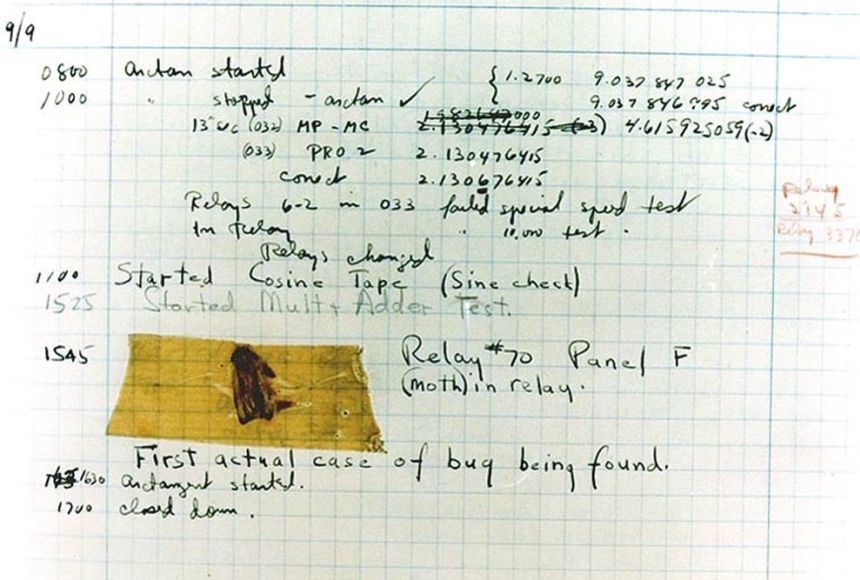 9/9
0800 arctan started { 1.2700 9.037 847 025
1000 " stopped - arctan ✓ 9.037 846 995 correct
13"uc (032) MP - MC 2.130476415 (-3) 4.615925059(-2)
(033) PRO 2 2.130476415
correct 2.130676415
Relays 6-2 in 033 failed special speed test
In Relay " 10.000 test .
Relays changed
Relay
2145
Relay 3370
1100 Started Cosine Tape (Sine check)
1525 Started Mult + Adder Test.
1545 Relay #70 Panel F
(moth) in relay.
First actual case of bug being found.
1630 arctangent started.
1700 closed down .